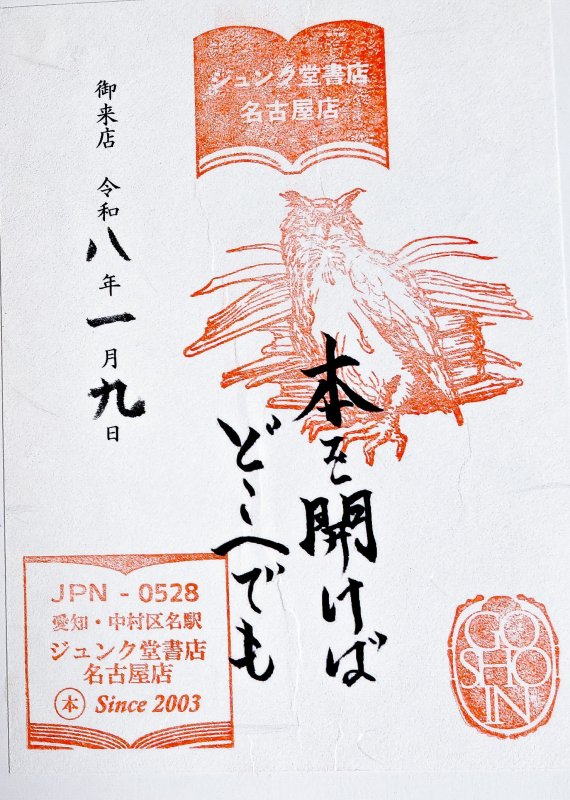 ジュンク堂書店
名古屋店
御来店 令和八年一月九日
本を開けば
どこへでも
JPN - 0528
愛知・中村区名駅
ジュンク堂書店
名古屋店
本 Since 2003
GO
SHO
IN